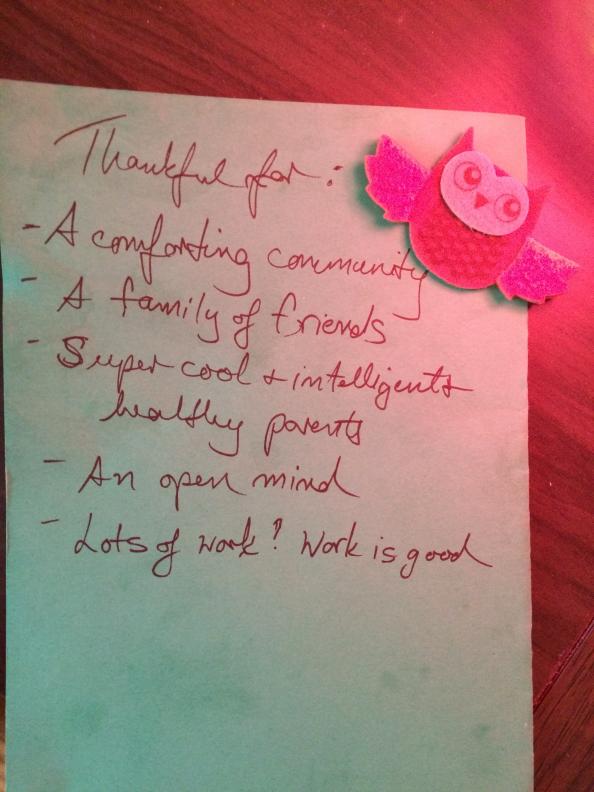 Thankful for:
- A comforting community
- A family of friends
- Super cool + intelligent +
healthy parents
- An open mind
- Lots of work? Work is good